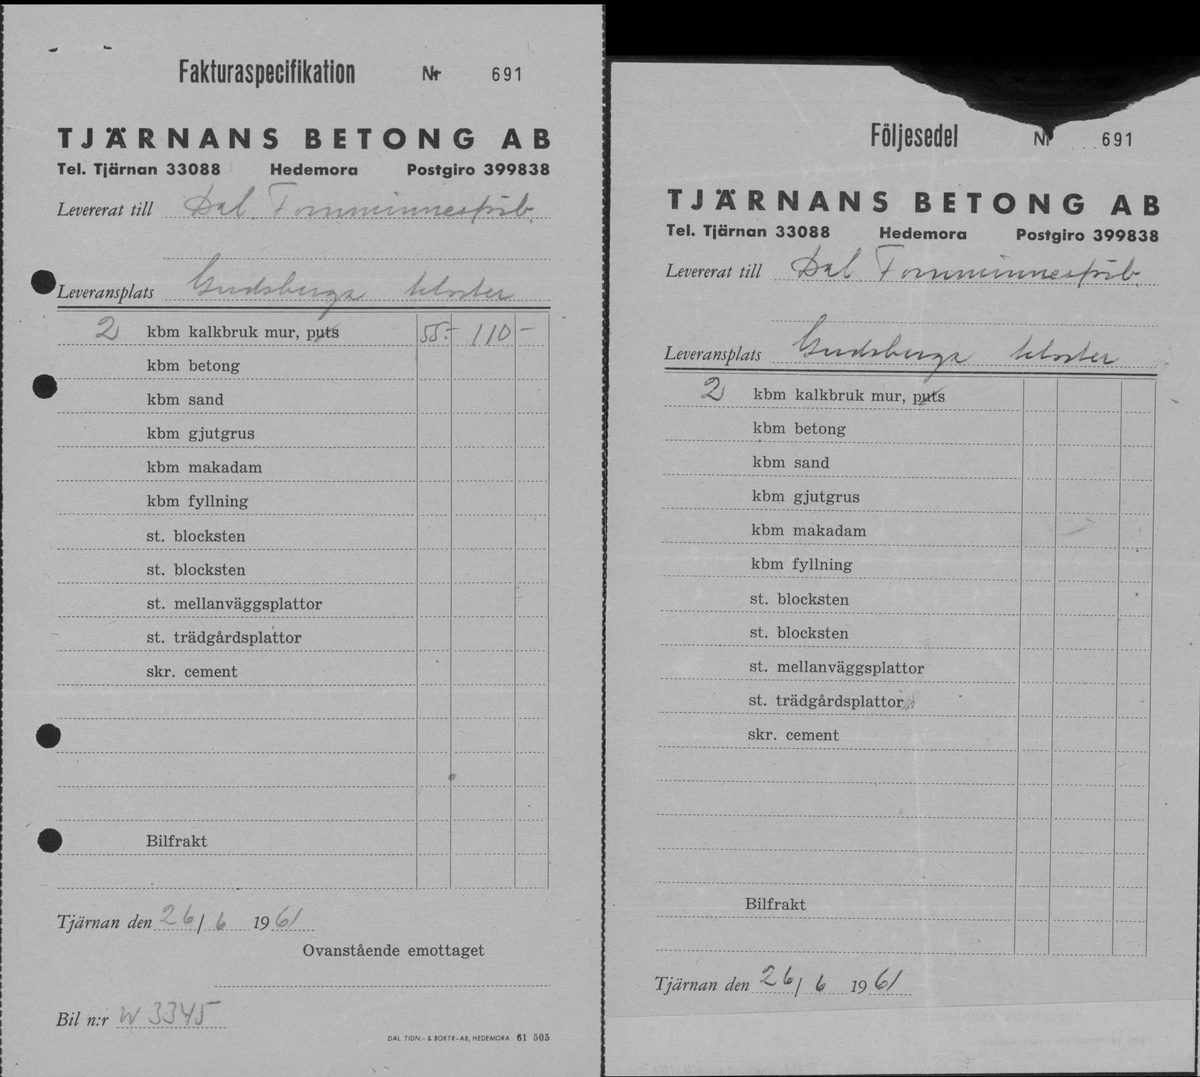 Fakturaspecifikation Nr 691
TJÄRNANS BETONG AB
Tel. Tjärnan 33088 Hedemora Postgiro 399838
Levererat till Dal. Fornminnesförb.
Leveransplats Gudsberga kloster
2 kbm kalkbruk mur, puts 55:- 110 -
kbm betong
kbm sand
kbm gjutgrus
kbm makadam
kbm fyllning
st. blocksten
st. blocksten
st. mellanväggsplattor
st. trädgårdsplattor
skr. cement
Bilfrakt
Tjärnan den 26/6 1961
Ovanstående emottaget
Bil n:r W 3345
DAL. TIDN.- & BOKTR-AB, HEDEMORA 61 505
Följesedel Nr 691
TJÄRNANS BETONG AB
Tel. Tjärnan 33088 Hedemora Postgiro 399838
Levererat till Dal. Fornminnesförb.
Leveransplats Gudsberga kloster
2 kbm kalkbruk mur, puts
kbm betong
kbm sand
kbm gjutgrus
kbm makadam
kbm fyllning
st. blocksten
st. blocksten
st. mellanväggsplattor
st. trädgårdsplattor
skr. cement
Bilfrakt
Tjärnan den 26/6 1961